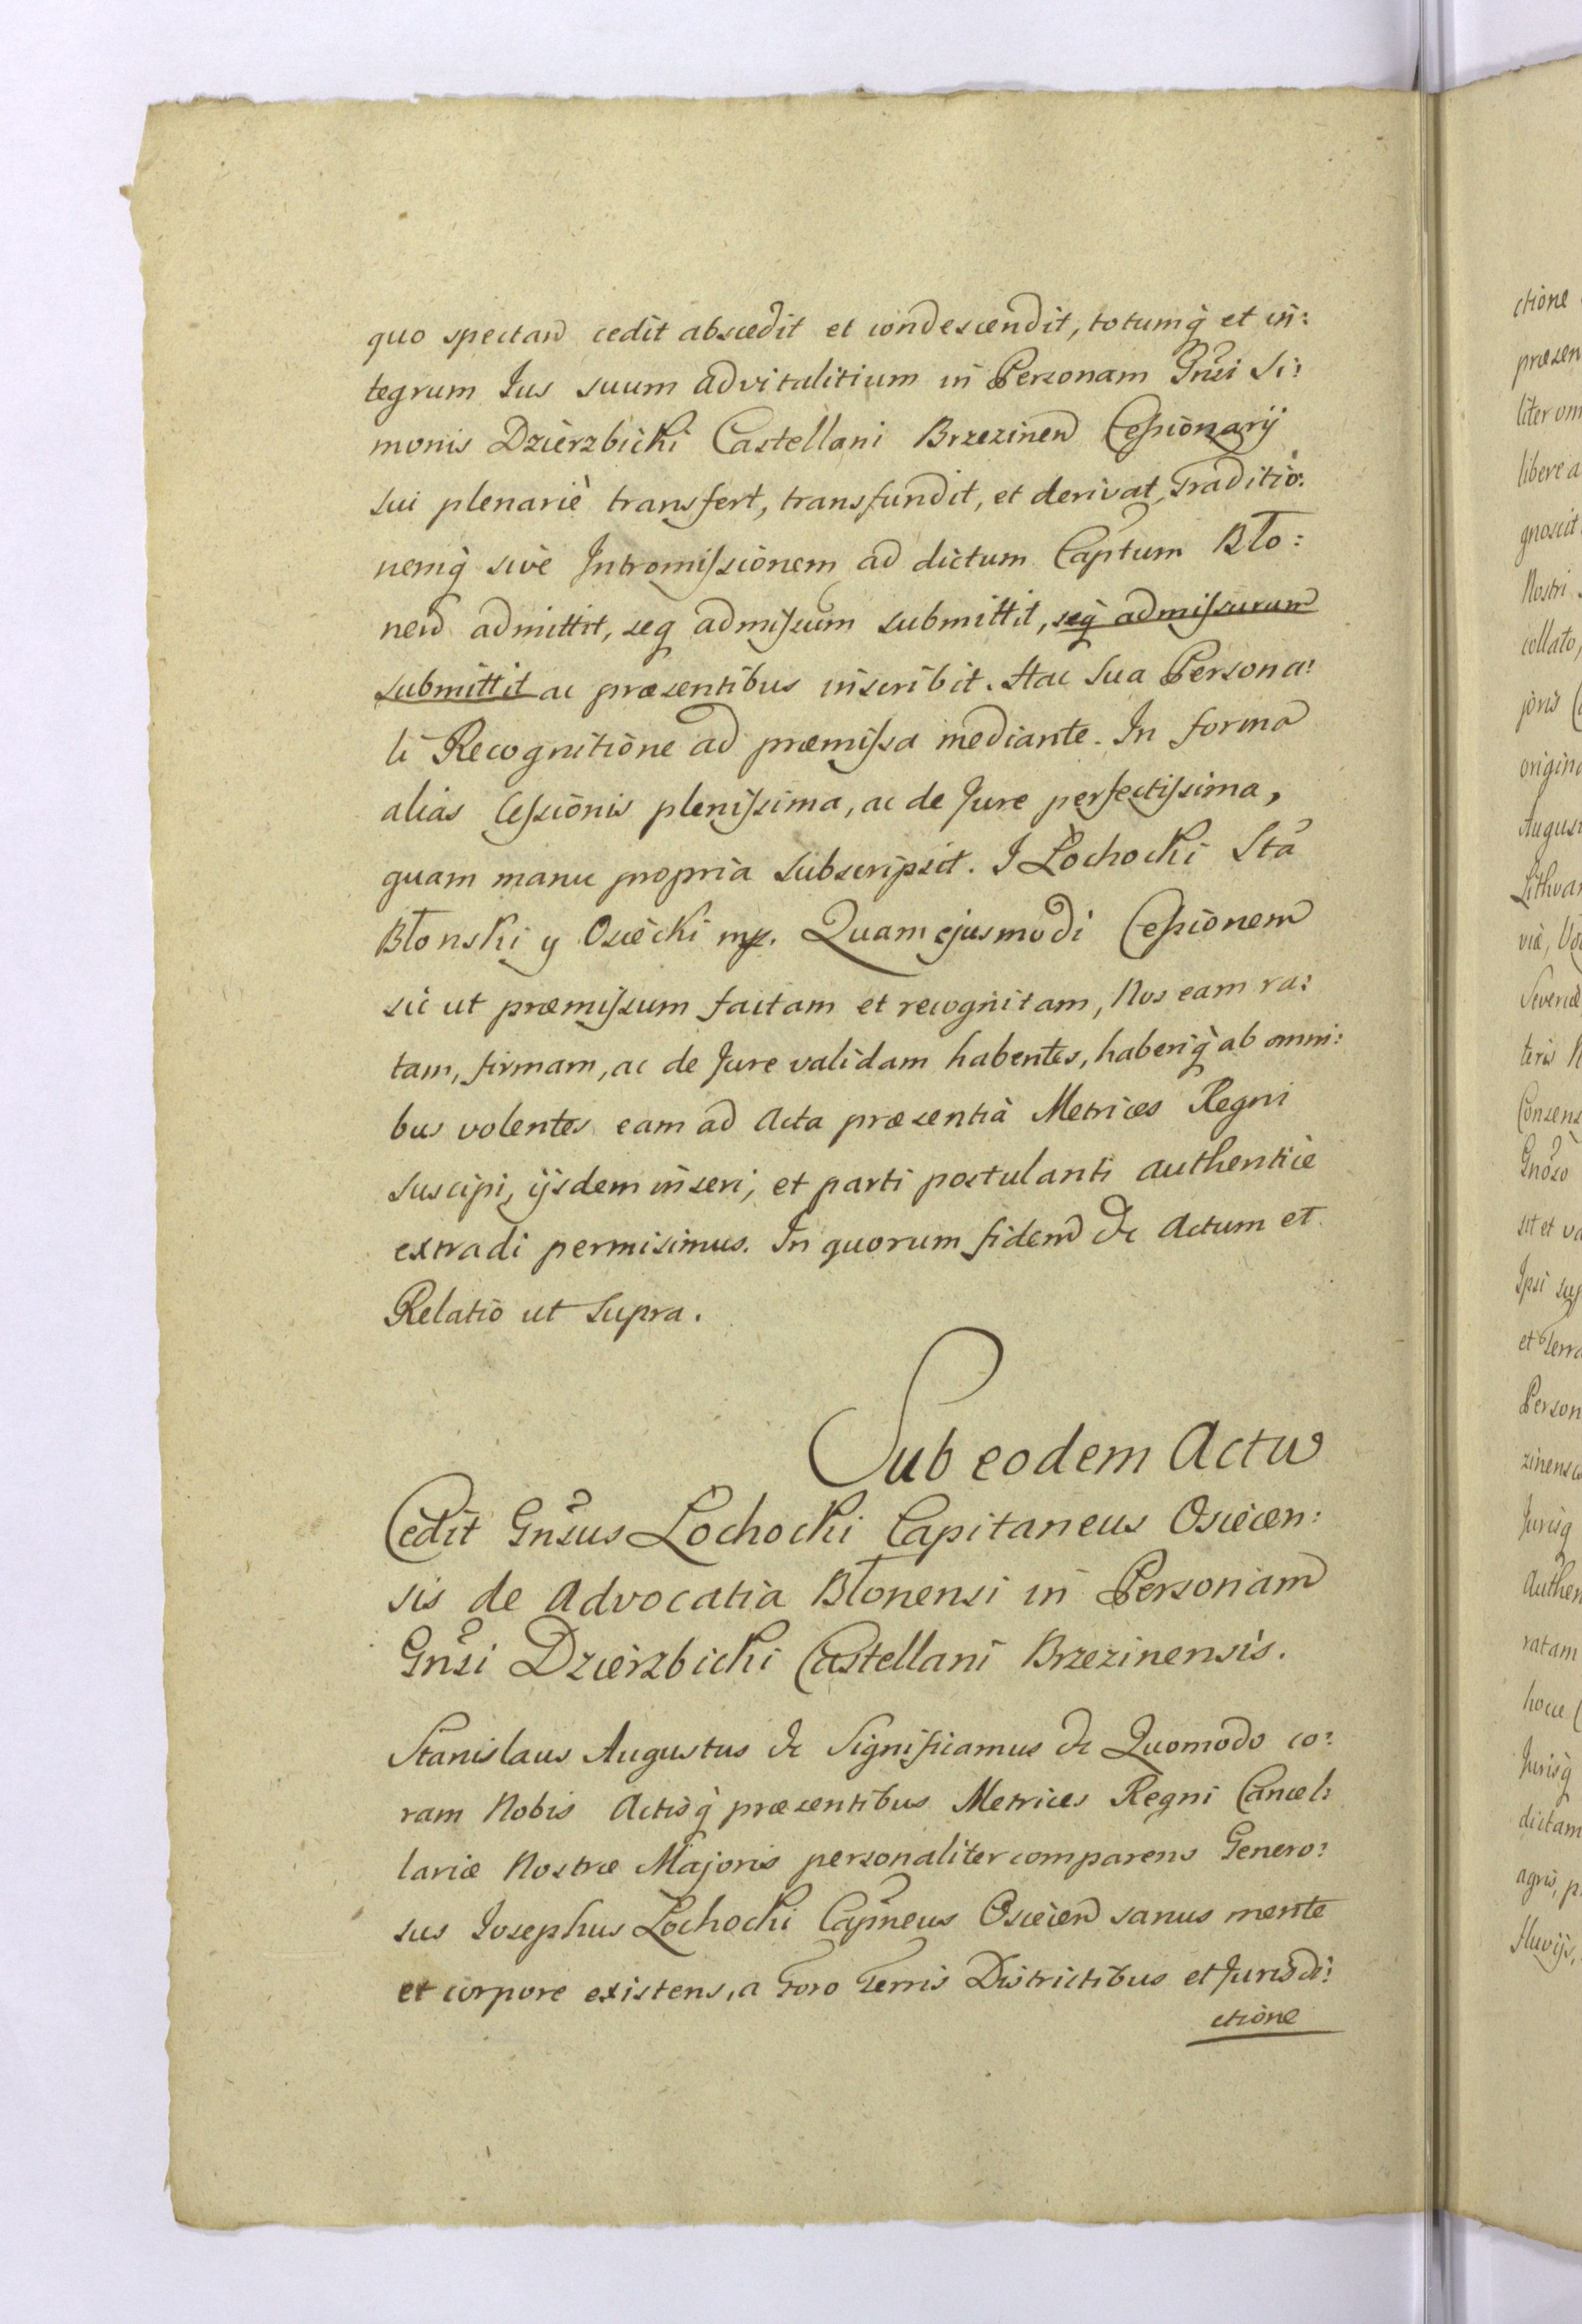 quo spectand cedit abscedit et condescendit, totumq̀ et in:
tegrum Jus suum advitalitium in Personam Gnsi Si:
monis Dzierzbicki Castellani Brzezinen Cessionarij
sui plenariè transfert, transfundit, et derivat, traditio:
nemq̀ sivè Intromissionem ad dictum Captum Bło:
nen admittit, seq admissum submittit, seq̀ admissurum
submittit ac præsentibus inscribit. Hac sua Persona:
li Recognitione ad præmissa mediante. In forma
alias Cessionis plenissima, ac de Jure perfectissima,
quam manu propria subscripsit. J Łochocki Sta
Błonski y Osiecki mp. Quam ejusmodi Cessionem
sic ut præmissum factam et recognitam, Nos eam ra:
tam, firmam, ac de Jure validam habentes, haberiq̀ ab omni:
bus volentes eam ad Acta præsentia Metrices Regni
suscipi, ijsdem inseri, et parti postulanti authenticè
extradi permisimus. In quorum fidem &c Actum et
Relatio ut supra.
Sub eodem Actu
Cedit Gnsus Łochocki Capitaneus Osiecen:
sis de Advocatia Błonensi in Personam
Gnsi Dzierzbicki Castellani Brzezinensis.
Stanislaus Augustus &c Significamus &c Quomodo co:
ram Nobis Actisq̀ præsentibus Metrices Regni Cancel:
lariæ Nostræ Majoris personaliter comparens Genero:
sus Josephus Łochocki Capneus Osiecen sanus mente
et corpore existens, a Foro Terris Districtibus et Jurisdi:
ctione